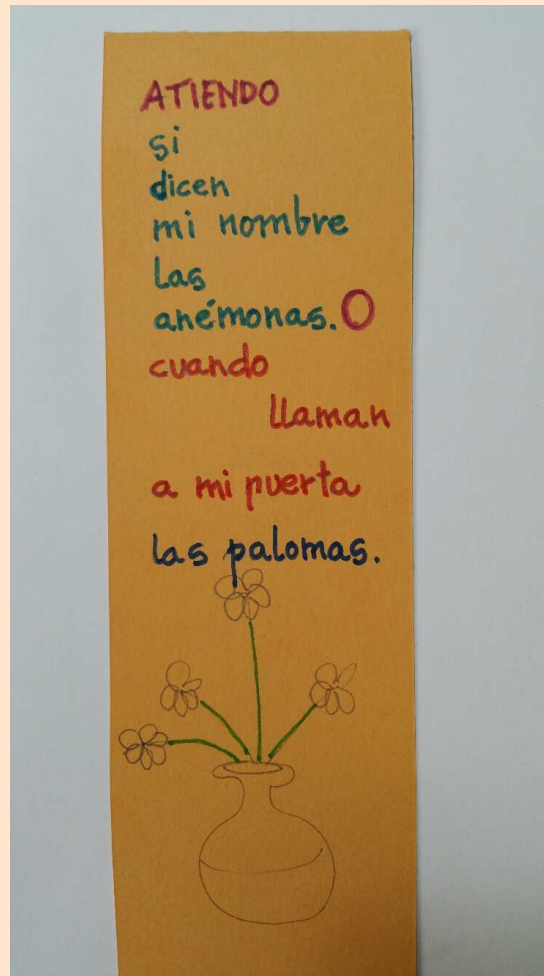 ATIENDO
si
dicen
mi nombre
las
anémonas. O
cuando
llaman
a mi puerta
las palomas.